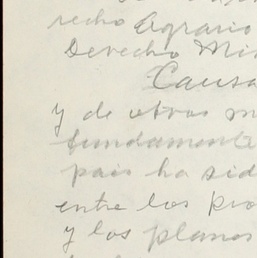 recho Agrario
Derecho Min
Causa
y de otras m
fundamenta
país ha sid
entre los pro
y los planos